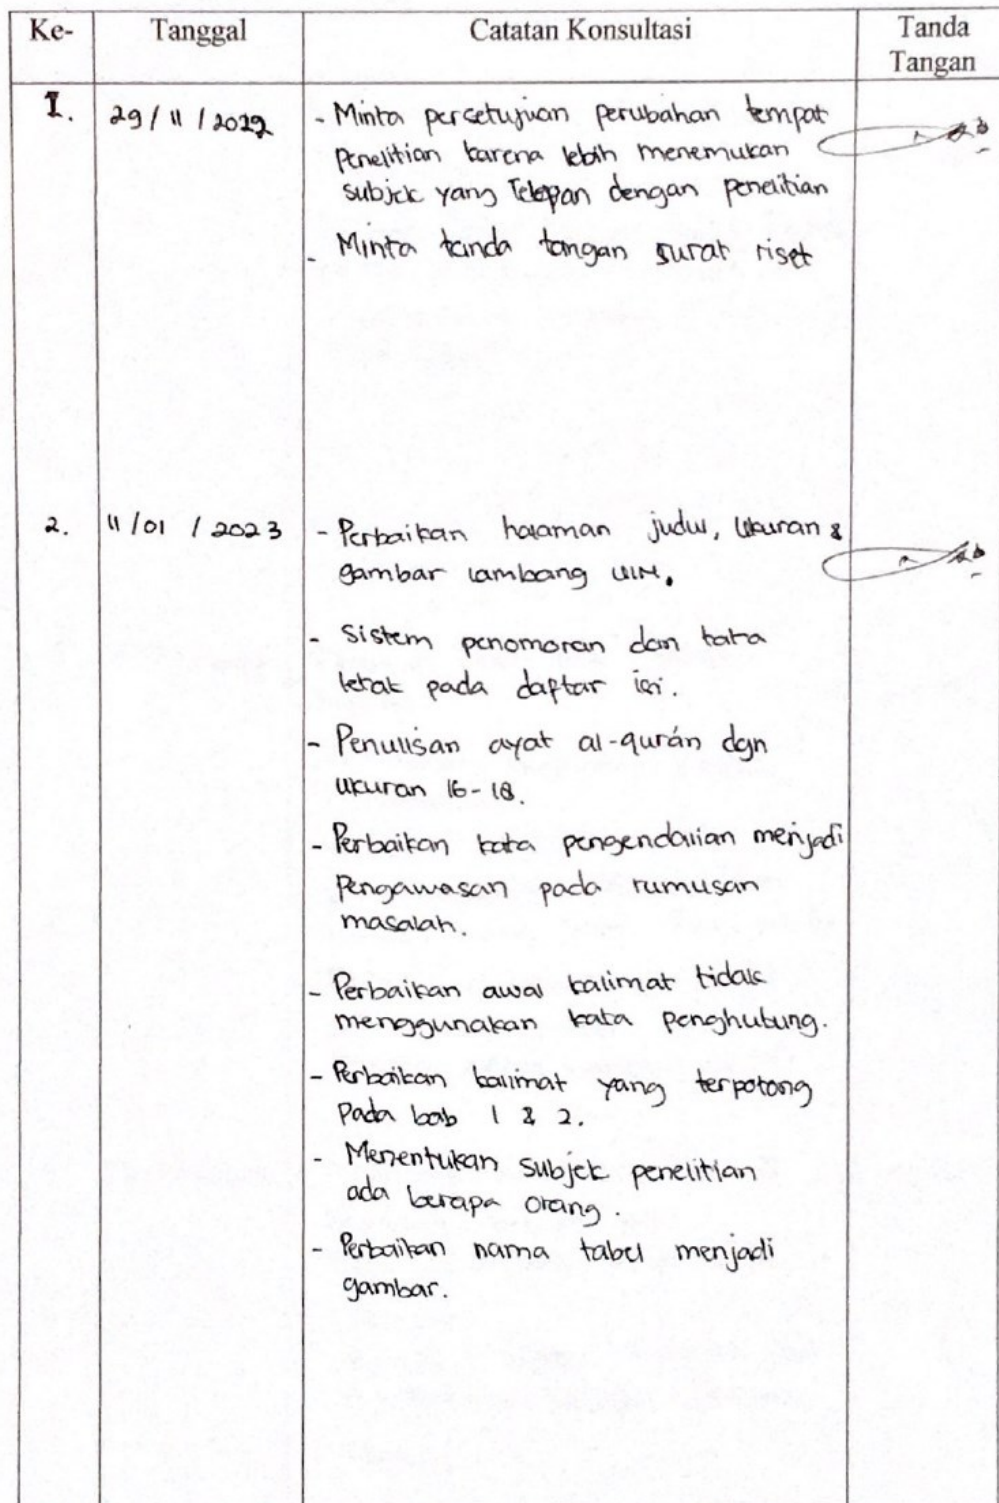 Ke- Tanggal Catatan Konsultasi Tanda
Tangan
1. 29/11/2022 - Minta persetujuan perubahan tempat
penelitian karena lebih menemukan
subjek yang dengan penelitian
- Minta tanda tangan surat riset
2. 11/01/2023 - Perbaikan halaman judul, ukuran &
gambar lambang UIN.
- Sistem penomoran dan tata
letak pada daftar isi.
- Penulisan ayat al-qurán dgn
ukuran 16-18.
- Perbaikan kata pengendalian menjadi
Pengawasan pada rumusan
masalah.
- Perbaikan awal kalimat tidak
menggunakan kata penghubung.
- Perbaikan kalimat yang terpotong
Pada bab 1 & 2.
- Menentukan subjek penelitian
ada berapa orang.
- Perbaikan nama tabel menjadi
gambar.